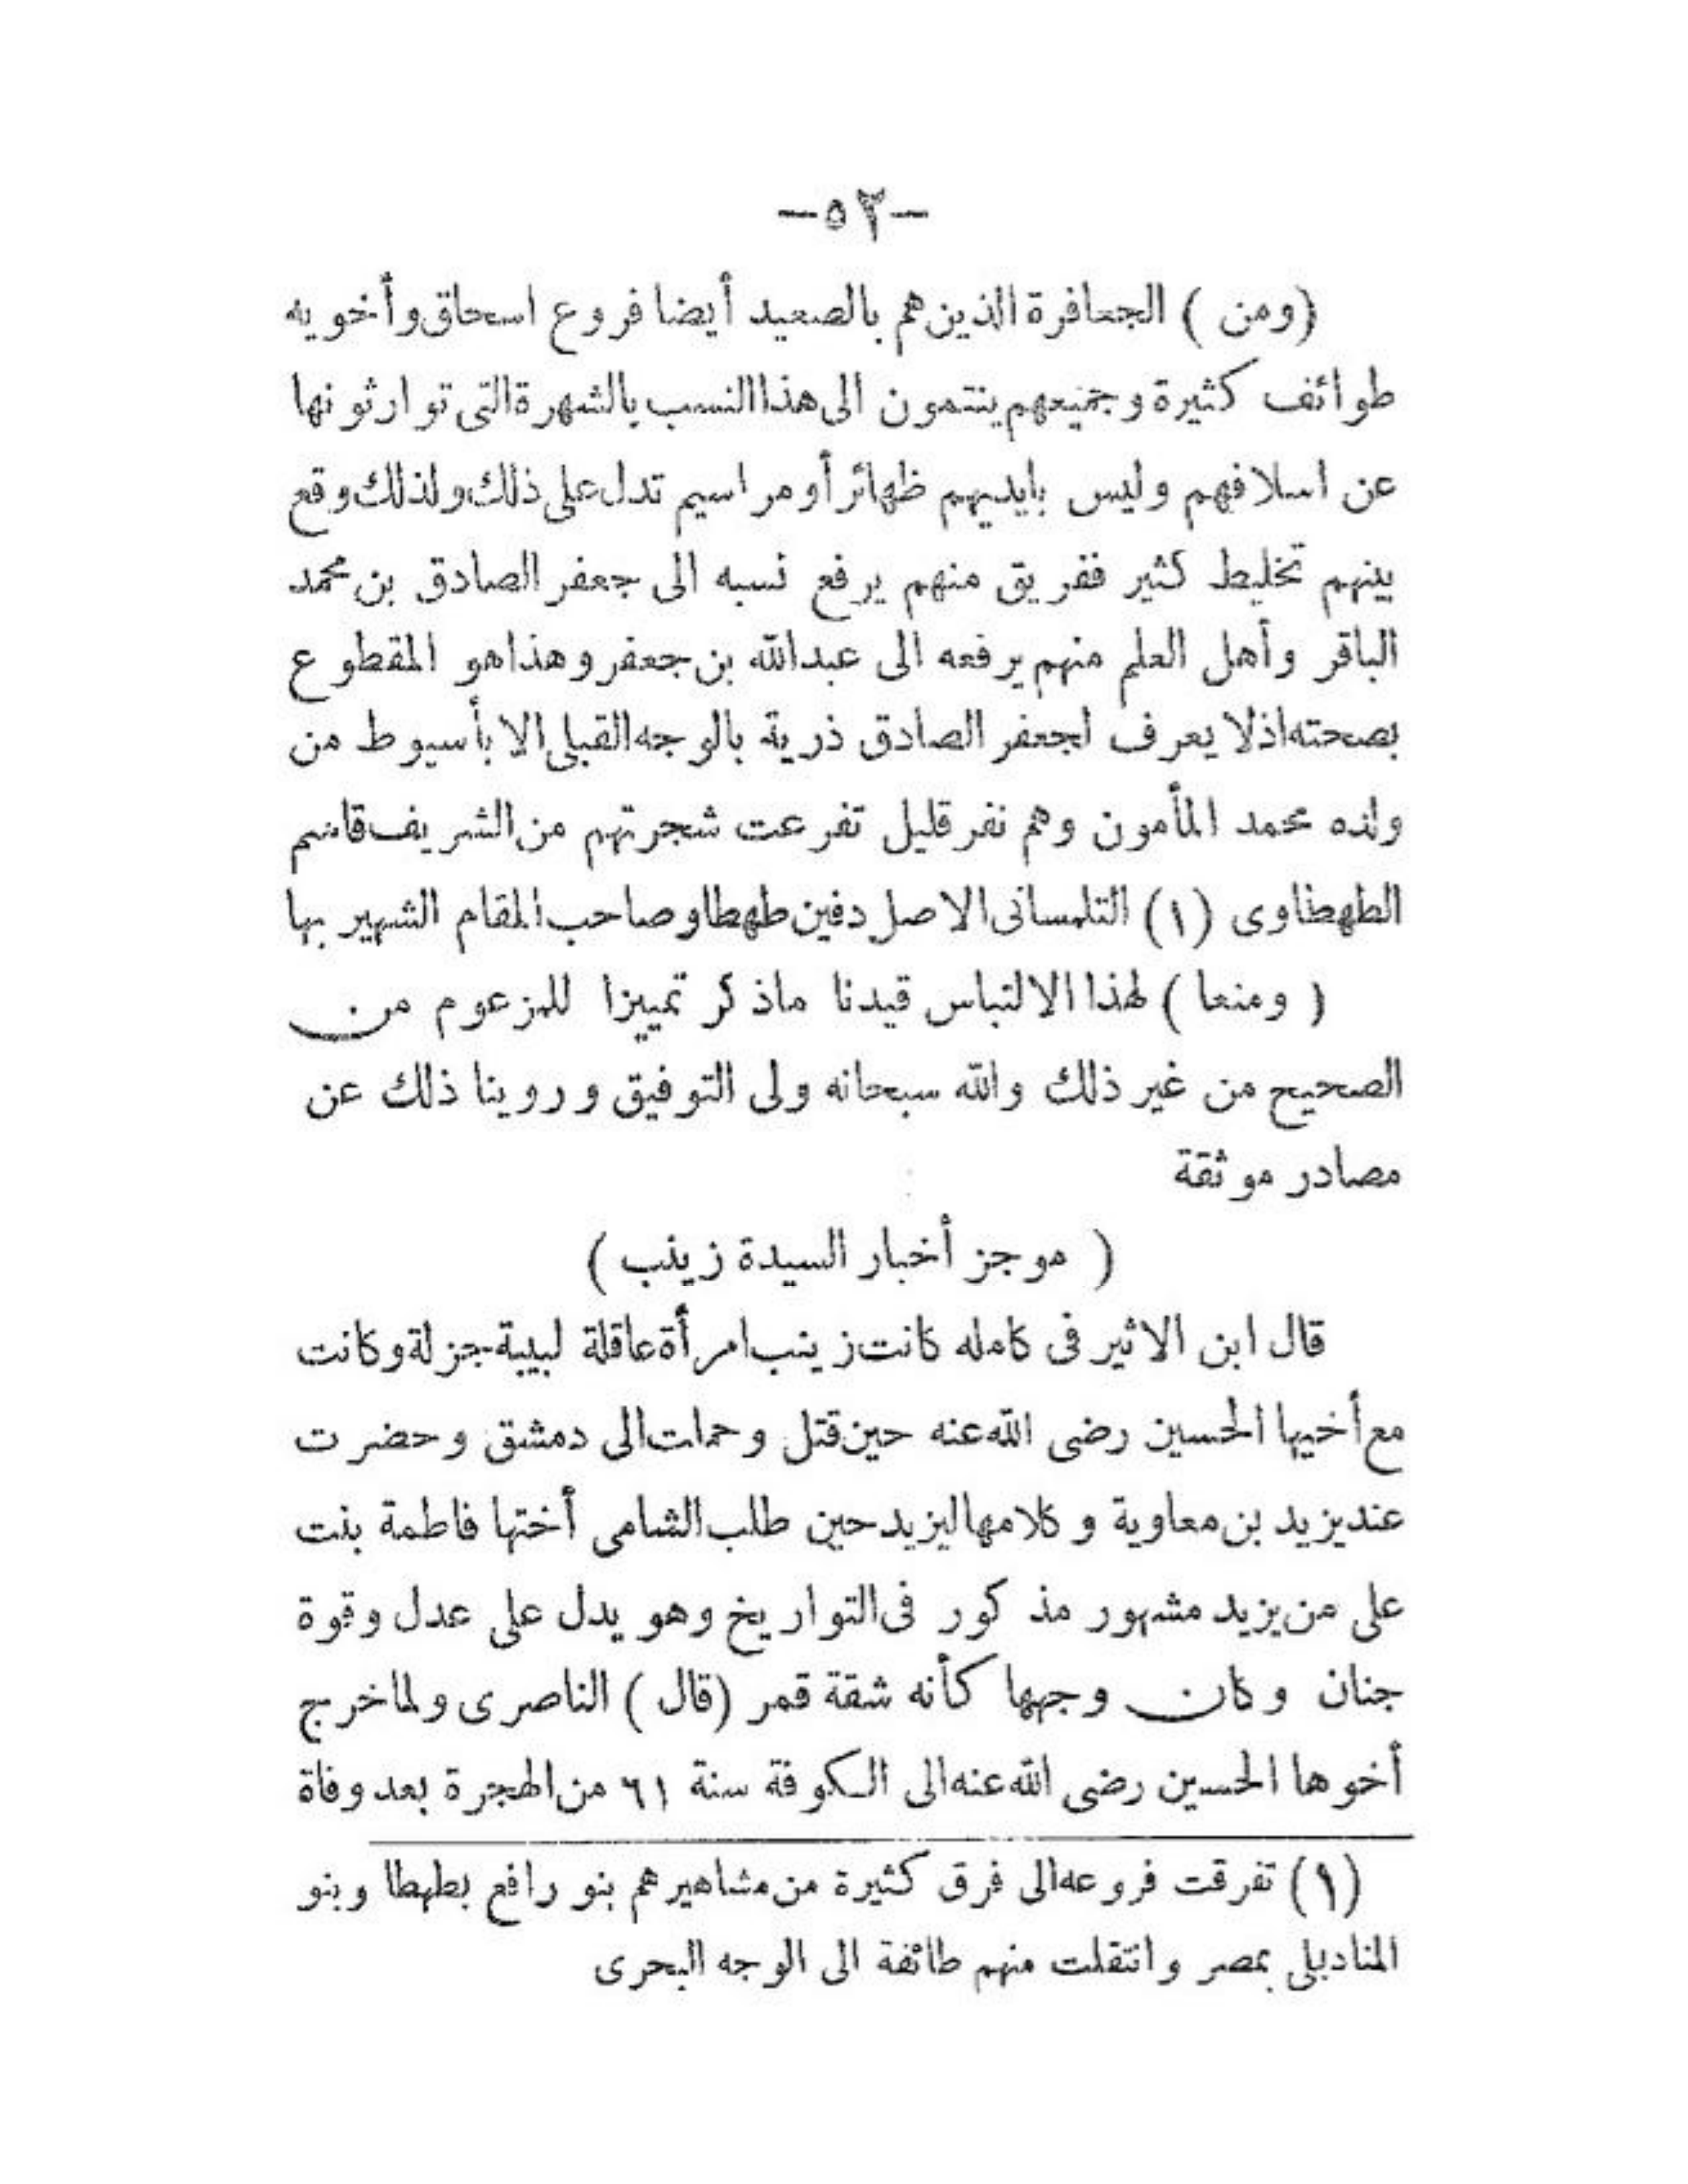 —٥٣—
(ومن ) الجعافرة الذين هم بالصعيد أيضا فروع اسحاق وأخويه
طوائف كثيرة وجميعهم ينتمون الى هذا النسب بالشهرة التى توارثونها
عن اسلافهم وليس بايديهم ظهائر أو مراسيم تدل على ذلك ولذلك وقع
بينهم تخليط كثير ففريق منهم يرفع نسبه الى جعفر الصادق بن محمد
الباقر وأهل العلم منهم يرفعه الى عبدالله بن جعفر وهذا هو المقطوع
بصحته اذ لا يعرف لجعفر الصادق ذرية بالوجه القبلى الا بأسيوط من
ولده محمد المأمون وهم نفر قليل تفرعت شجرتهم من الشريف قاسم
الطهطاوى (١) التلمسانى الاصل دفين طهطا وصاحب المقام الشهير بها
( ومنعا ) لهذا الالتباس قيدنا ماذكر تمييزا للمزعوم من
الصحيح من غير ذلك والله سبحانه ولى التوفيق وروينا ذلك عن
مصادر موثقة
( موجز أخبار السيدة زينب )
قال ابن الاثير فى كامله كانت زينب امرأة عاقلة لبيبة جزلة وكانت
مع أخيها الحسين رضى الله عنه حين قتل وحملت الى دمشق وحضرت
عند يزيد بن معاوية وكلامها ليزيد حين طلب الشامى أختها فاطمة بنت
على من يزيد مشهور مذكور فى التواريخ وهو يدل على عدل وقوة
جنان وكان وجهها كأنه شقة قمر (قال ) الناصرى ولما خرج
أخوها الحسين رضى الله عنه الى الكوفة سنة ٦١ من الهجرة بعد وفاة
(١) تفرقت فروعه الى فرق كثيرة من مشاهيرهم بنو رافع بطهطا وبنو
المناديلى بمصر وانتقلت منهم طائفة الى الوجه البحرى